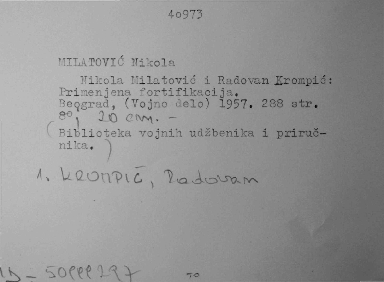 40973
MILATOVIĆ Nikola
Nikola Milatović i Radovan Krompić:
Primenjena fortifikacija.
Beograd, (Vojno delo) 1957. 288 str.
8°, 20 cm. —
(Biblioteka vojnih udžbenika i priruč-
nika. )
1. KROMPIĆ, Radovan